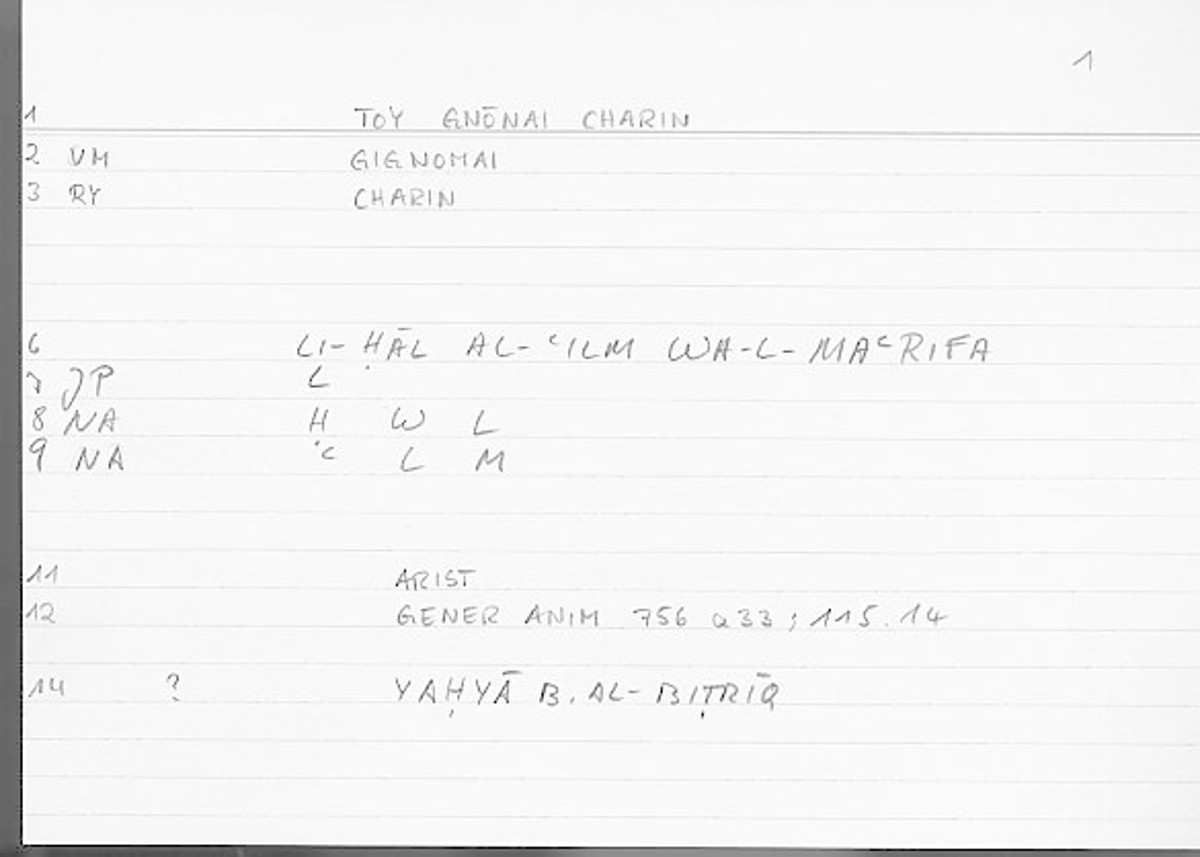 1
1 TOY GNŌNAI CHARIN
2 VM GIGNOMAI
3 RY CHARIN
6 LI- ḤĀL AL-ʿILM WA-L-MAʿRIFA
7 JP L
8 NA Ḥ W L
9 NA ʿ L M
11 ARIST
12 GENER ANIM 756 a33; 115.14
14 ? YAḤYĀ B. AL-BIṬRĪQ